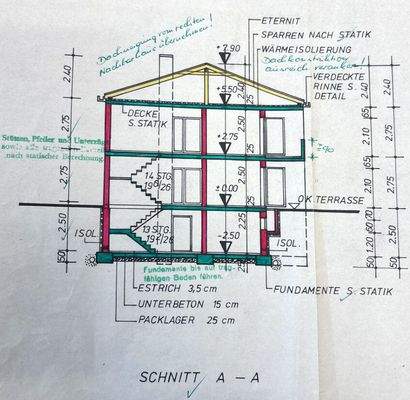 Dachneigung von rechten
Nachbarhaus übernehmen!
ETERNIT
SPARREN NACH STATIK
WÄRMEISOLIERUNG
Dachkonstruktion
ausreich. verankern!
VERDECKTE
RINNE S. S.
DETAIL
+ 7.90
+ 5.50
DECKE
S. STATIK
+ 2.75
Stützen, Pfeiler und Unterzüge
nach statischer Berechnung
14 STG.
19⁶/26
± 0.00
OK TERRASSE
- 2.50
13 STG.
19²/26
ISOL.
ISOL.
2.40
2.75
2.75
2.50
50
25
25
25
2.40
65
2.10
65
2.10
60
70
1.20
50
2.40
2.75
2.75
2.50
50
90
Fundamente bis auf trag-
fähigen Boden führen.
ESTRICH 3,5 cm
UNTERBETON 15 cm
PACKLAGER 25 cm
FUNDAMENTE S. STATIK
SCHNITT A - A